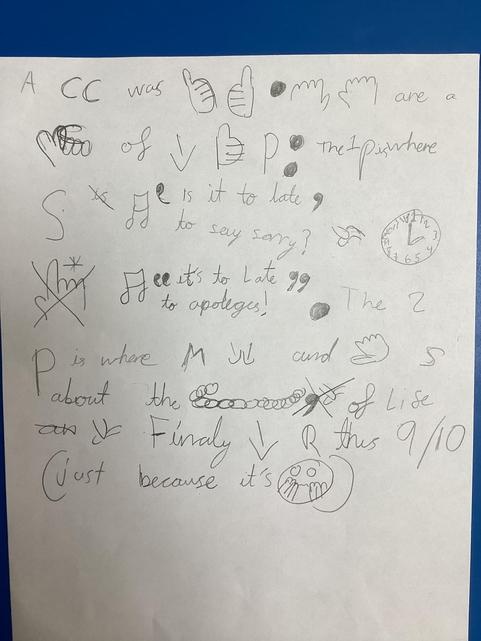 A CC was are a
of p: The 1 p is where
S is it to late,
to say sorry? 12 1 2 3 4 5 6 7
"it's to Late"
to apoleges! . The 2
P is where M and S
about the of Life
Finaly R this 9/10
(just because it's )